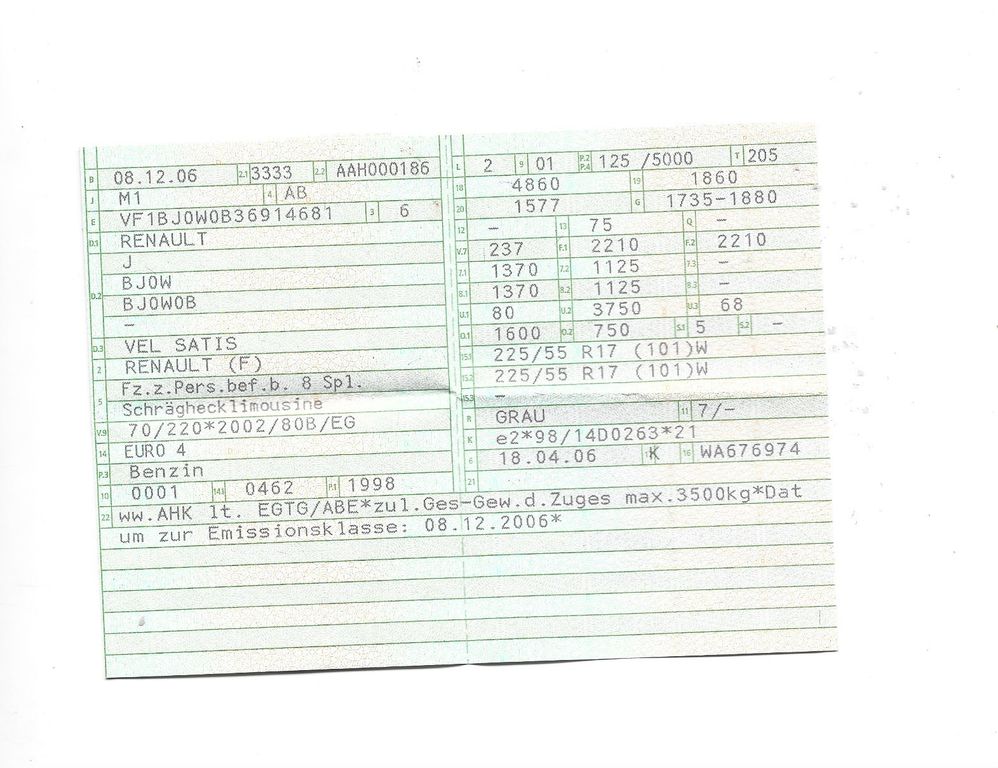 B 08.12.06 2.1 3333 2.2 AAH000186
J M1 4 AB
E VF1BJ0W0B36914681 3 6
D.1 RENAULT
J
D.2 BJ0W
BJ0W0B
–
D.3 VEL SATIS
2 RENAULT (F)
5 Fz.z.Pers.bef.b. 8 Spl.
Schräghecklimousine
V.9 70/220*2002/80B/EG
14 EURO 4
P.3 Benzin
10 0001 14.1 0462 P.1 1998
L 2 9 01 P.2 P.4 125 /5000 T 205
18 4860 19 1860
20 1577 G 1735-1880
12 – 13 75 Q –
V.7 237 F.1 2210 F.2 2210
7.1 1370 7.2 1125 7.3 –
8.1 1370 8.2 1125 8.3 –
U.1 80 U.2 3750 U.3 68
O.1 1600 O.2 750 S.1 5 S.2 –
15.1 225/55 R17 (101)W
15.2 225/55 R17 (101)W
15.3 –
R GRAU 11 7/–
K e2*98/14D0263*21
6 18.04.06 17 K 16 WA676974
21
22 ww.AHK lt. EGTG/ABE*zul.Ges-Gew.d.Zuges max.3500kg*Dat
um zur Emissionsklasse: 08.12.2006*